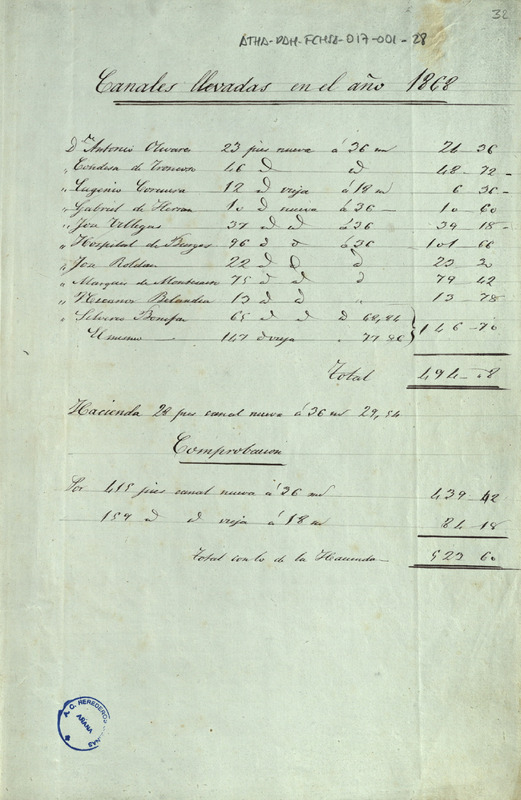 32
ATHA-DAH-FCHSA-017-001-28
Canales llevadas en el año 1868
Dn Antonio Olivares 23 pies nueva á 36 m 24 36
" Condesa de Troncoso 46 d d 48-72-
" Eugenio Corcuera 12 d vieja á 18 m 6 36-
" Gabriel de Herran 10 d nueva á 36- 10-60
" Joa Villegas 37 d d á 36 39 18-
" Hospital de Burgos 96 d d á 36 101-66
" Joa Roldan 22 d d d 23 30
" Marques de 75 d d d 79 42
" Nicanor Belandia 13 d d " 13-78
" Silverio Bonifaz 65 d d D 68,84
El mismo 147 d vieja 77 86 } 146-70
Total 494-08
Hacienda 28 pies canal nueva á 36 m 29,54
Comprobacion
Por 415 pies canal nueva á 36 m 439 42
159 d d vieja á 18 m 84-18
Total con lo de la Hacienda 523 60
A. C. HEREDEROS
ARANA